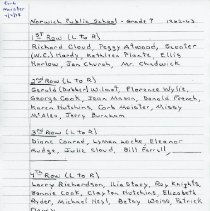 Norwich Public School - Grade 7 1962-63
1st Row (L to R)
Richard Cloud, Peggy Atwood, Scooter
(W.C.) Hardy, Kathleen Plante, Ellis
Harlow, Jan Church, Mr. Chadwick
2nd Row (L to R)
Gerald (Dubber) Wilmot, Florence Wylie,
George Cook, Jean Mason, Donald
Karen Hutchins, Cork Moister, Missy
McAlea, Jerry Burnham
3rd Row (L to R)
Diane Conrad, Lyman Locke, Eleanor
Rudge, Julie Cloud, Bill Farrell,
4th Row (L to R)
Larry Richardson, Stacy, Ray Knights,
Bonnie Cook, Clayton Hutchins, Elizabeth
Arder, Michael Neyl, Betsy Weiss, Patrick